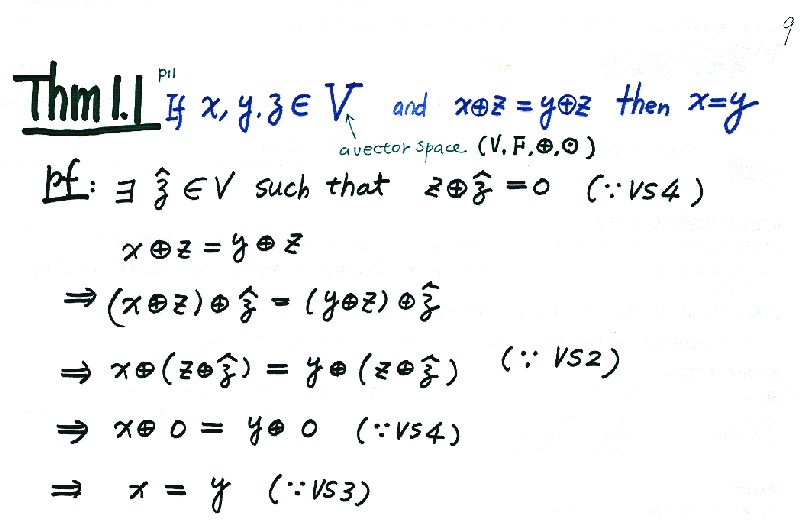 9
Thm 1.1 p11 If x, y, z ∈ V and x⊕z = y⊕z then x=y
a vector space (V, F, ⊕, ⊙)
pf: ∃ ẑ ∈ V such that z⊕ẑ = 0 (∵ VS4)
x⊕z = y⊕z
⇒ (x⊕z)⊕ẑ = (y⊕z)⊕ẑ
⇒ x⊕(z⊕ẑ) = y⊕(z⊕ẑ) (∵ VS2)
⇒ x⊕0 = y⊕0 (∵VS4)
⇒ x = y (∵VS3)